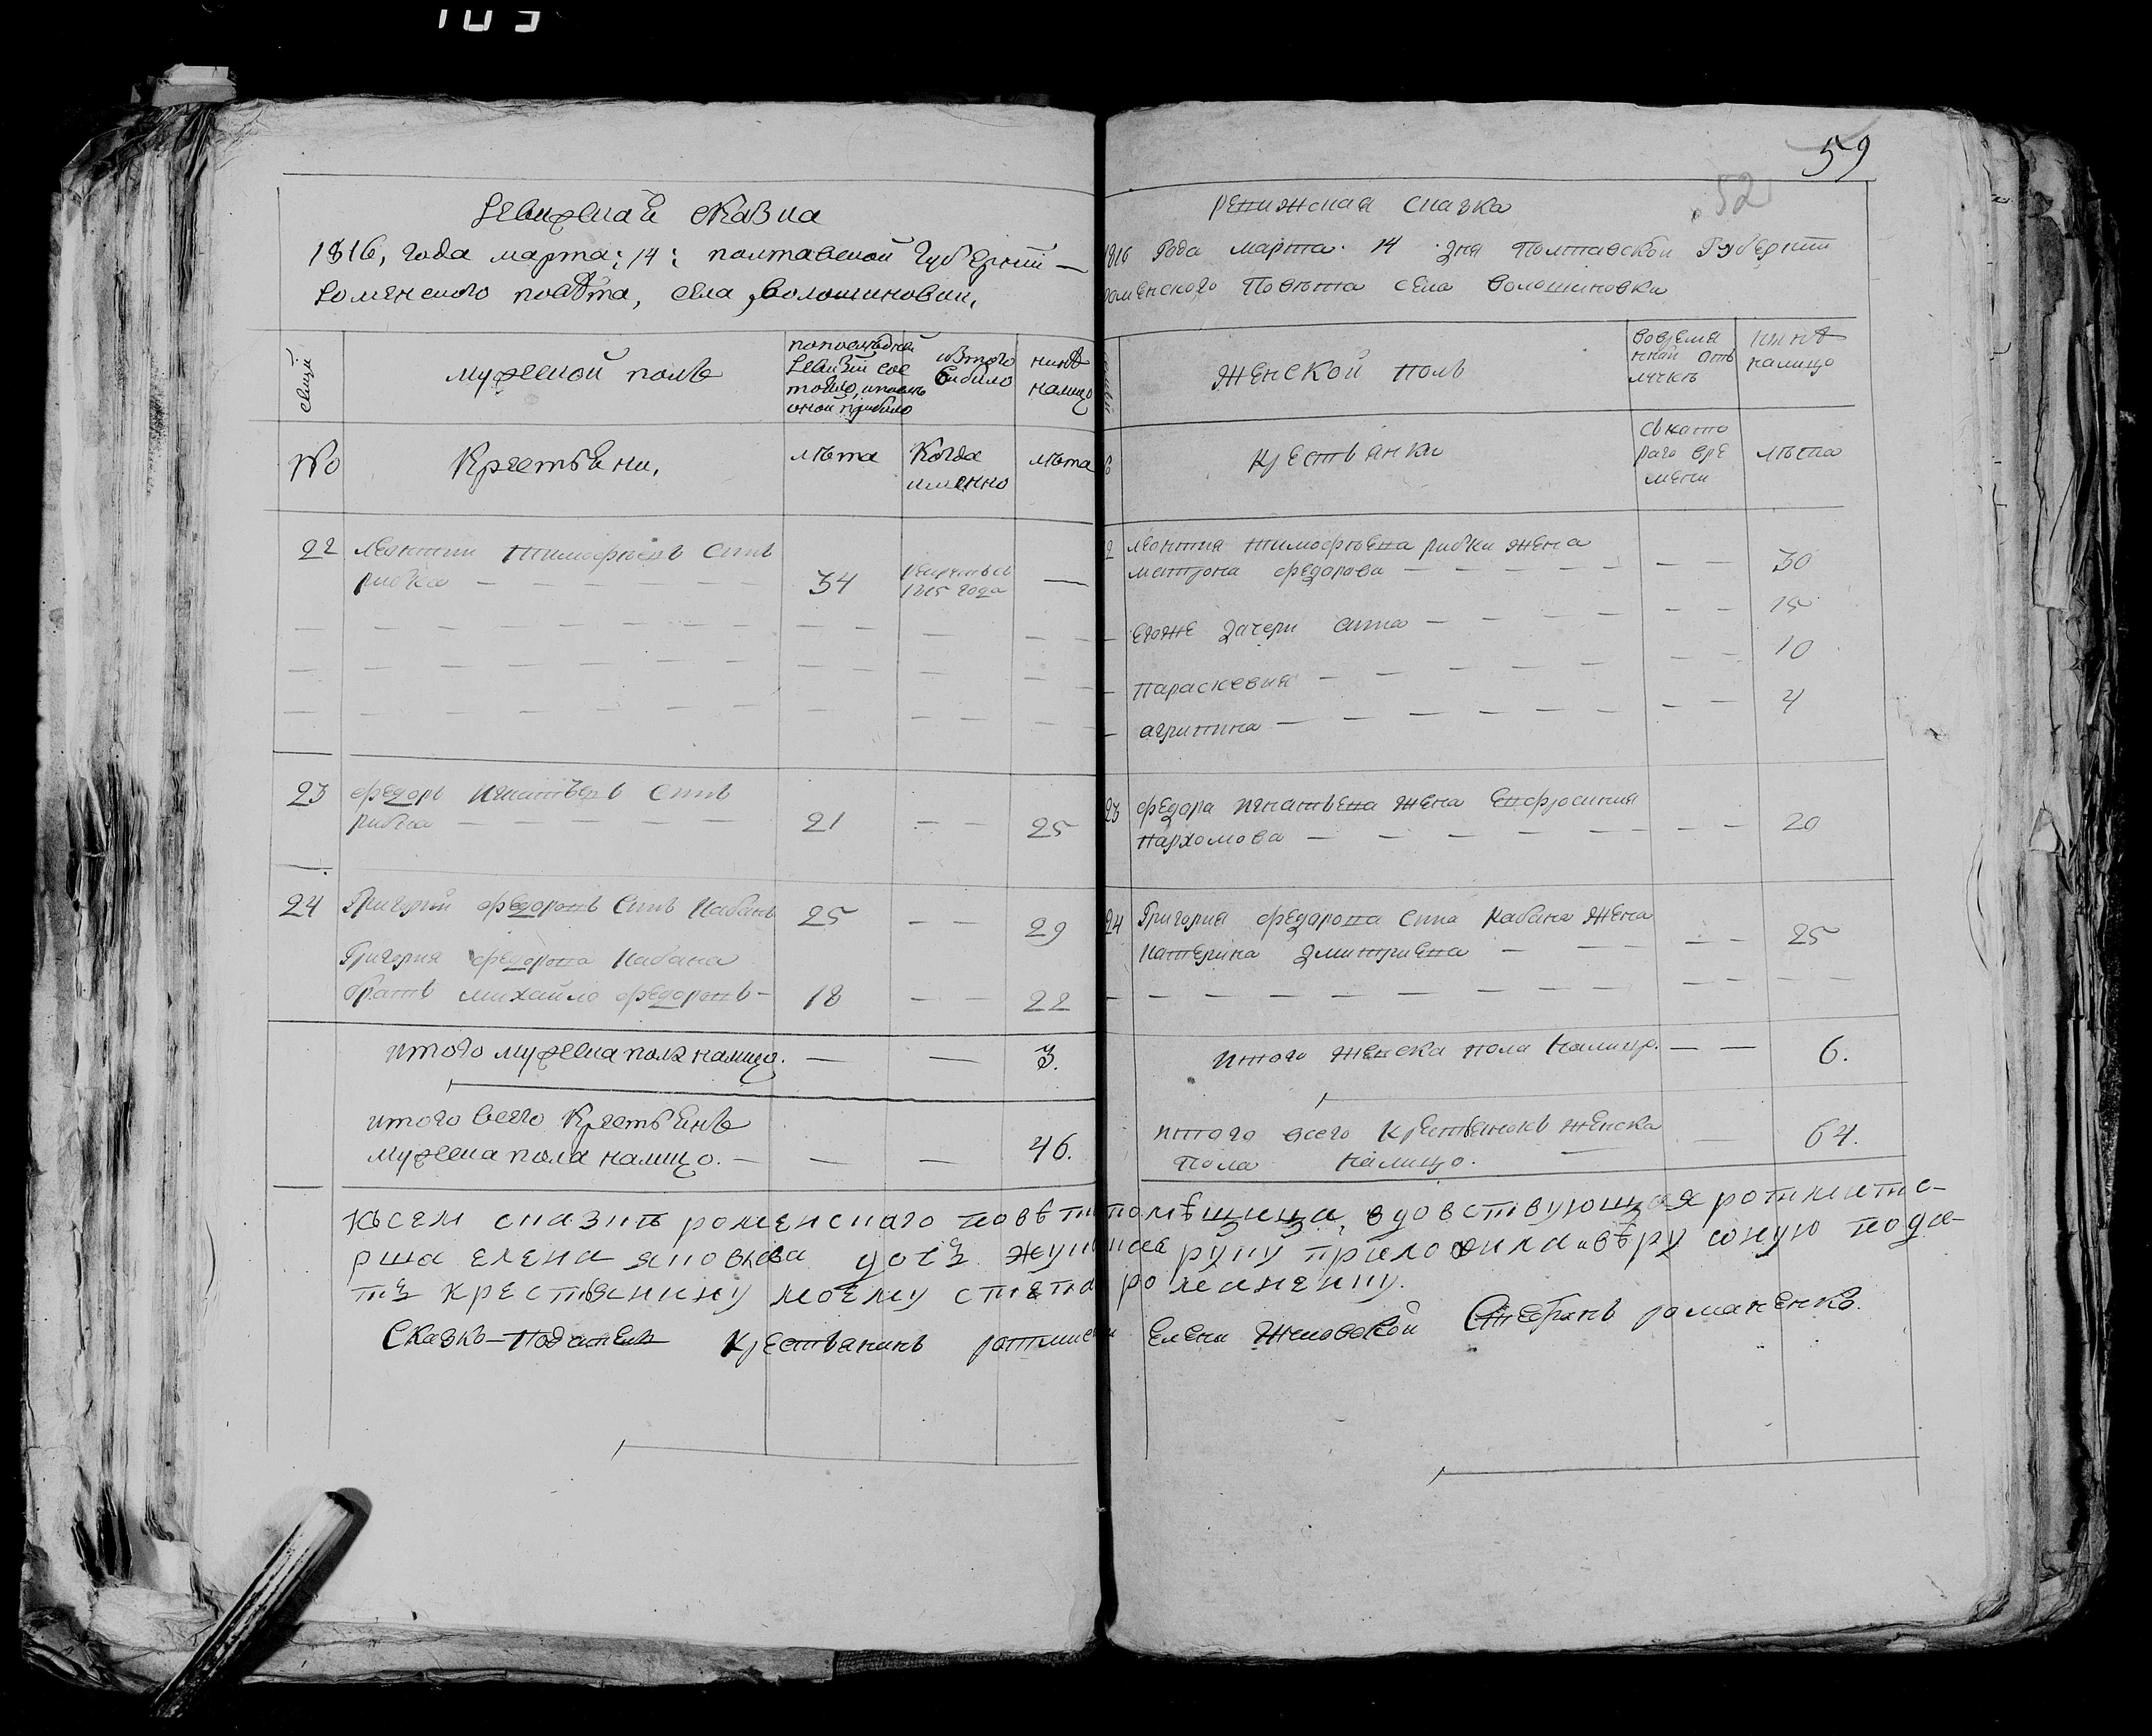 59
52
Ревизская сказка
1816, года марта: 14: полтавской Губернии
Роменского повѣта, села Волошиновки,
семьи
мужеской полъ
попоследней
Ревизии сос
тояло, ипослѣ
оной прибило
изтого
вибило
нинѣ
налицо
№
Крестьяни,
лѣта
Когда
именно
лѣта
22
леонтий тимофѣевъ Синъ
рибка
34
1815 года
23
федоръ игнатьевъ Синъ
рибка
21
25
24
Григорий федоровъ Синъ Кабанъ
25
29
Григория федорова Кабана
братъ михайло федоровъ
18
22
итого мужеска пола налицо.
3.
итого всего Крестьянъ
мужеска пола налицо.
46.
Ревижская Сказка
1816 Года марта 14 дня Полтавской Губернии
роменского Повѣта села волошиновки
Женской полъ
вовремя
нной отъ
лучкѣ
нинѣ
налицо
крестьянки
съкото
раго вре
мени
лѣта
леонтия тимофѣева рибки жена
матрона федорова
30
егоже дочери анна
15
параскевия
10
агрипина
4
23
федора игнатьева жена Евфросиния
пархомова
20
24
Григория федорова Сина Кабана Жена
катерина дмитриева
25
итого женска пола налицо.
6.
итого всего крестьянокъ женска
пола налицо.
64.
ксей сказки роменского повѣта помѣщица, вдовствующая ротмист
рша елена яковлева дочъ руку приложила ивѣру сию пода
тъ крестьянину моему степа романенку.
Сказко-Подавецъ Крестьянинъ ротмис Елени Стефанъ романенко.